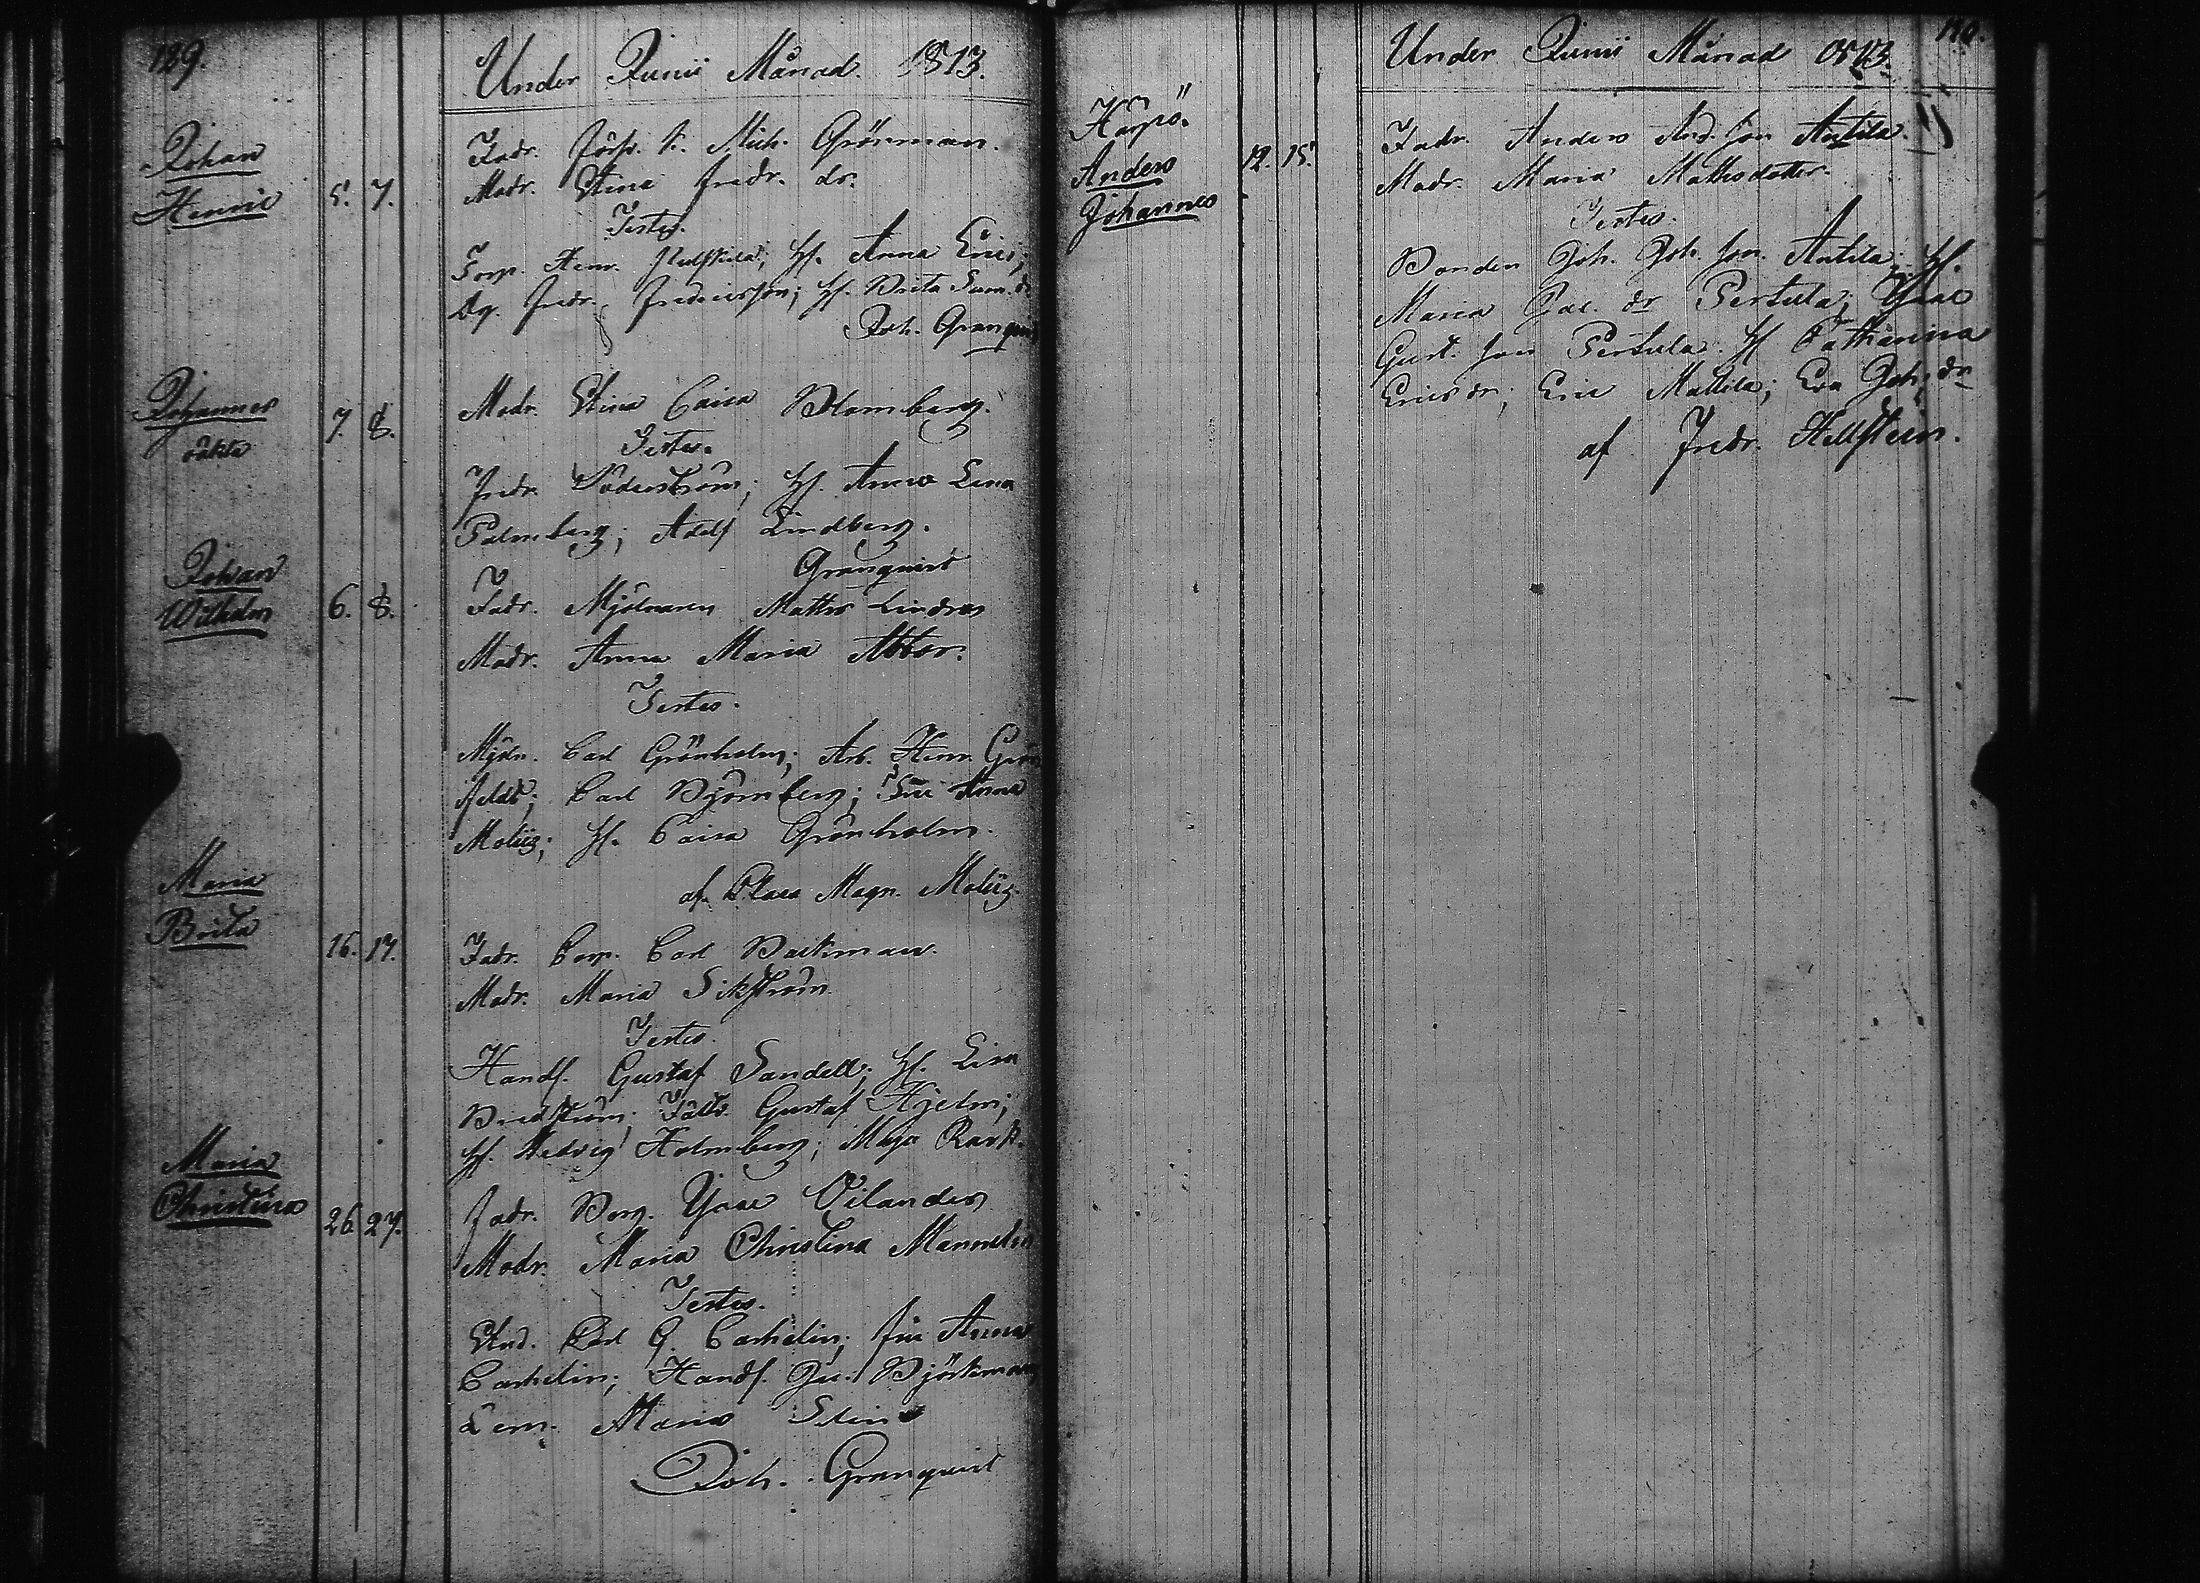 129.
Under Junii Månad. 1813.
Johan
Henric
5. 7.
Fadr. Mich. Grönman.
Modr. Stina Fredr. dr.
Testes.
Torp. Henr. Hf. Anna Erics;
Dg. Fredr. Fredericsson; Hf. Brita Sam. dr
Joh. Granquist
Johannes
oäkta
7. 8.
Modr. Stina Caisa Blomberg.
Testes.
Fredr. Söderström; Hf. Anna Lena
Palmberg; Adolf Lindberg.
Granquist
Johan
Wilhelm
6. 8.
Fadr. Mjölnaren Matths Lindros
Modr. Anna Maria Abbor.
Testes.
Mjöln. Carl Grönholm; Arb. Henr. Grön
feldt; Carl Björnberg; Fru Anna
Moliis; Hf. Caisa Grönholm.
af Claes Magn. Moliis.
Maria
Brita
16. 17.
Fadr. Corp. Carl Backman.
Modr. Maria Sikström.
Testes.
Handl. Gustaf Sandell; Hf. Lisa
Bredström; Fältv. Gustaf Hjelm;
Hf. Hedvig Holmberg; Maja Rask.
Maria
Christina
26. 27.
Fadr. Borg. Isac Vilander
Modr. Maria Christina Mannelin
Testes.
Stud. Carl G. Cashelin; Fru Anna
Cashelin; Handl. Gu. Björkman
Dem. Maria Stina
Joh. Granquist
110.
Under Junii Månad 1813.
Harjo.
Anders
Johannes
12. 15.
Fadr. Anders And. son Antila.
Modr. Maria Mathsdotter.
Testes.
Bonden Joh. Joh. son Antila; Hf.
Maria Isac. dr Pertula; Isac
Gust. son Pertula. Hf Catharina
Ericsdr; Eric Mattila; Eva Joh. dr
af Fredr. Hellsten.